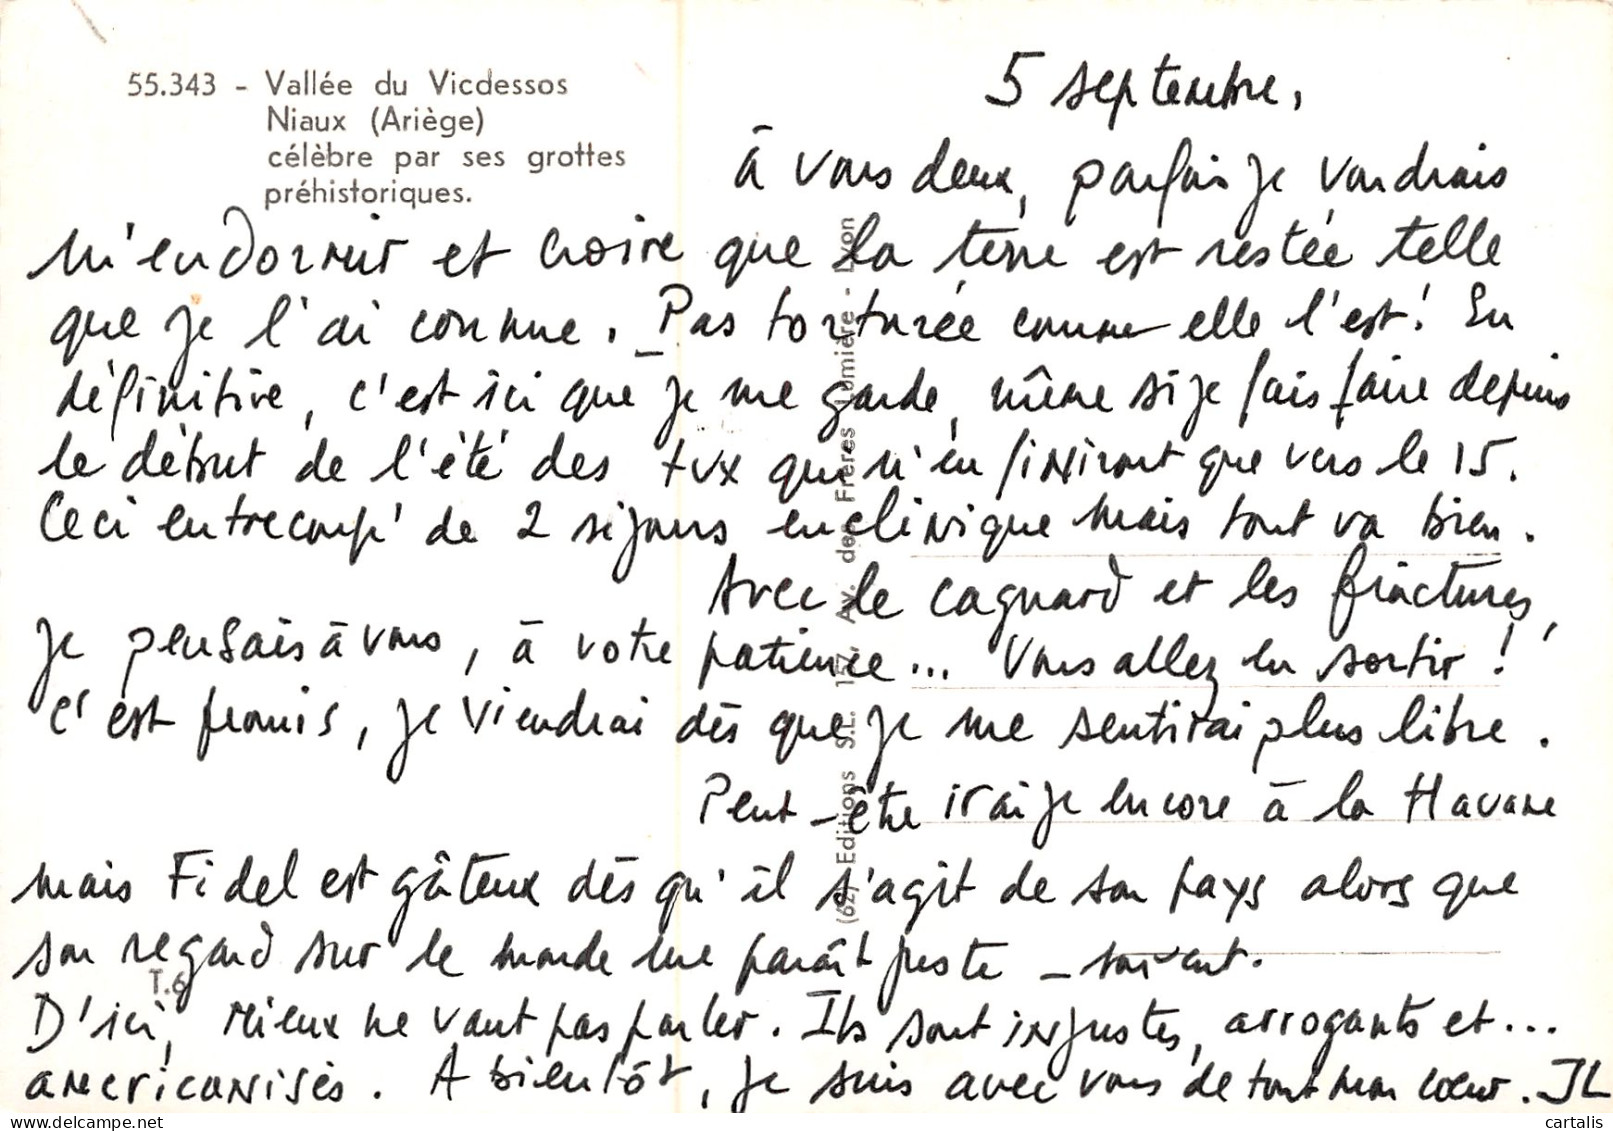 55.343 - Vallée du Vicdessos
Niaux (Ariège)
célèbre par ses grottes
préhistoriques.
5 septembre,
à vous deux, parfois je voudrais
m'endormir et croire que la terre est restée telle
que je l'ai connue. _ Pas torturée comme elle l'est! En
définitive, c'est ici que je me garde, même si je fais faire depuis
le début de l'été des tvx qui n'en finiront que vers le 15.
Ceci entrecoupé de 2 séjours en clinique mais tout va bien.
Avec le cagnard et les fractures,
je pensais à vous, à votre patience... Vous allez en sortir!
C'est promis, je viendrai dès que je me sentirai plus libre.
Peut-être irai je encore à la Havane
mais Fidel est gâteux dès qu'il s'agit de son pays alors que
son regard sur le monde me paraît juste _ souvent.
D'ici, mieux ne vaut pas parler. Ils sont injustes, arrogants et...
américanisés. A bientôt, je suis avec vous de tout mon cœur. JL
T.6
Editions S.L. Av. des Frères Lumière - Lyon
www.delcampe.net
cartalis